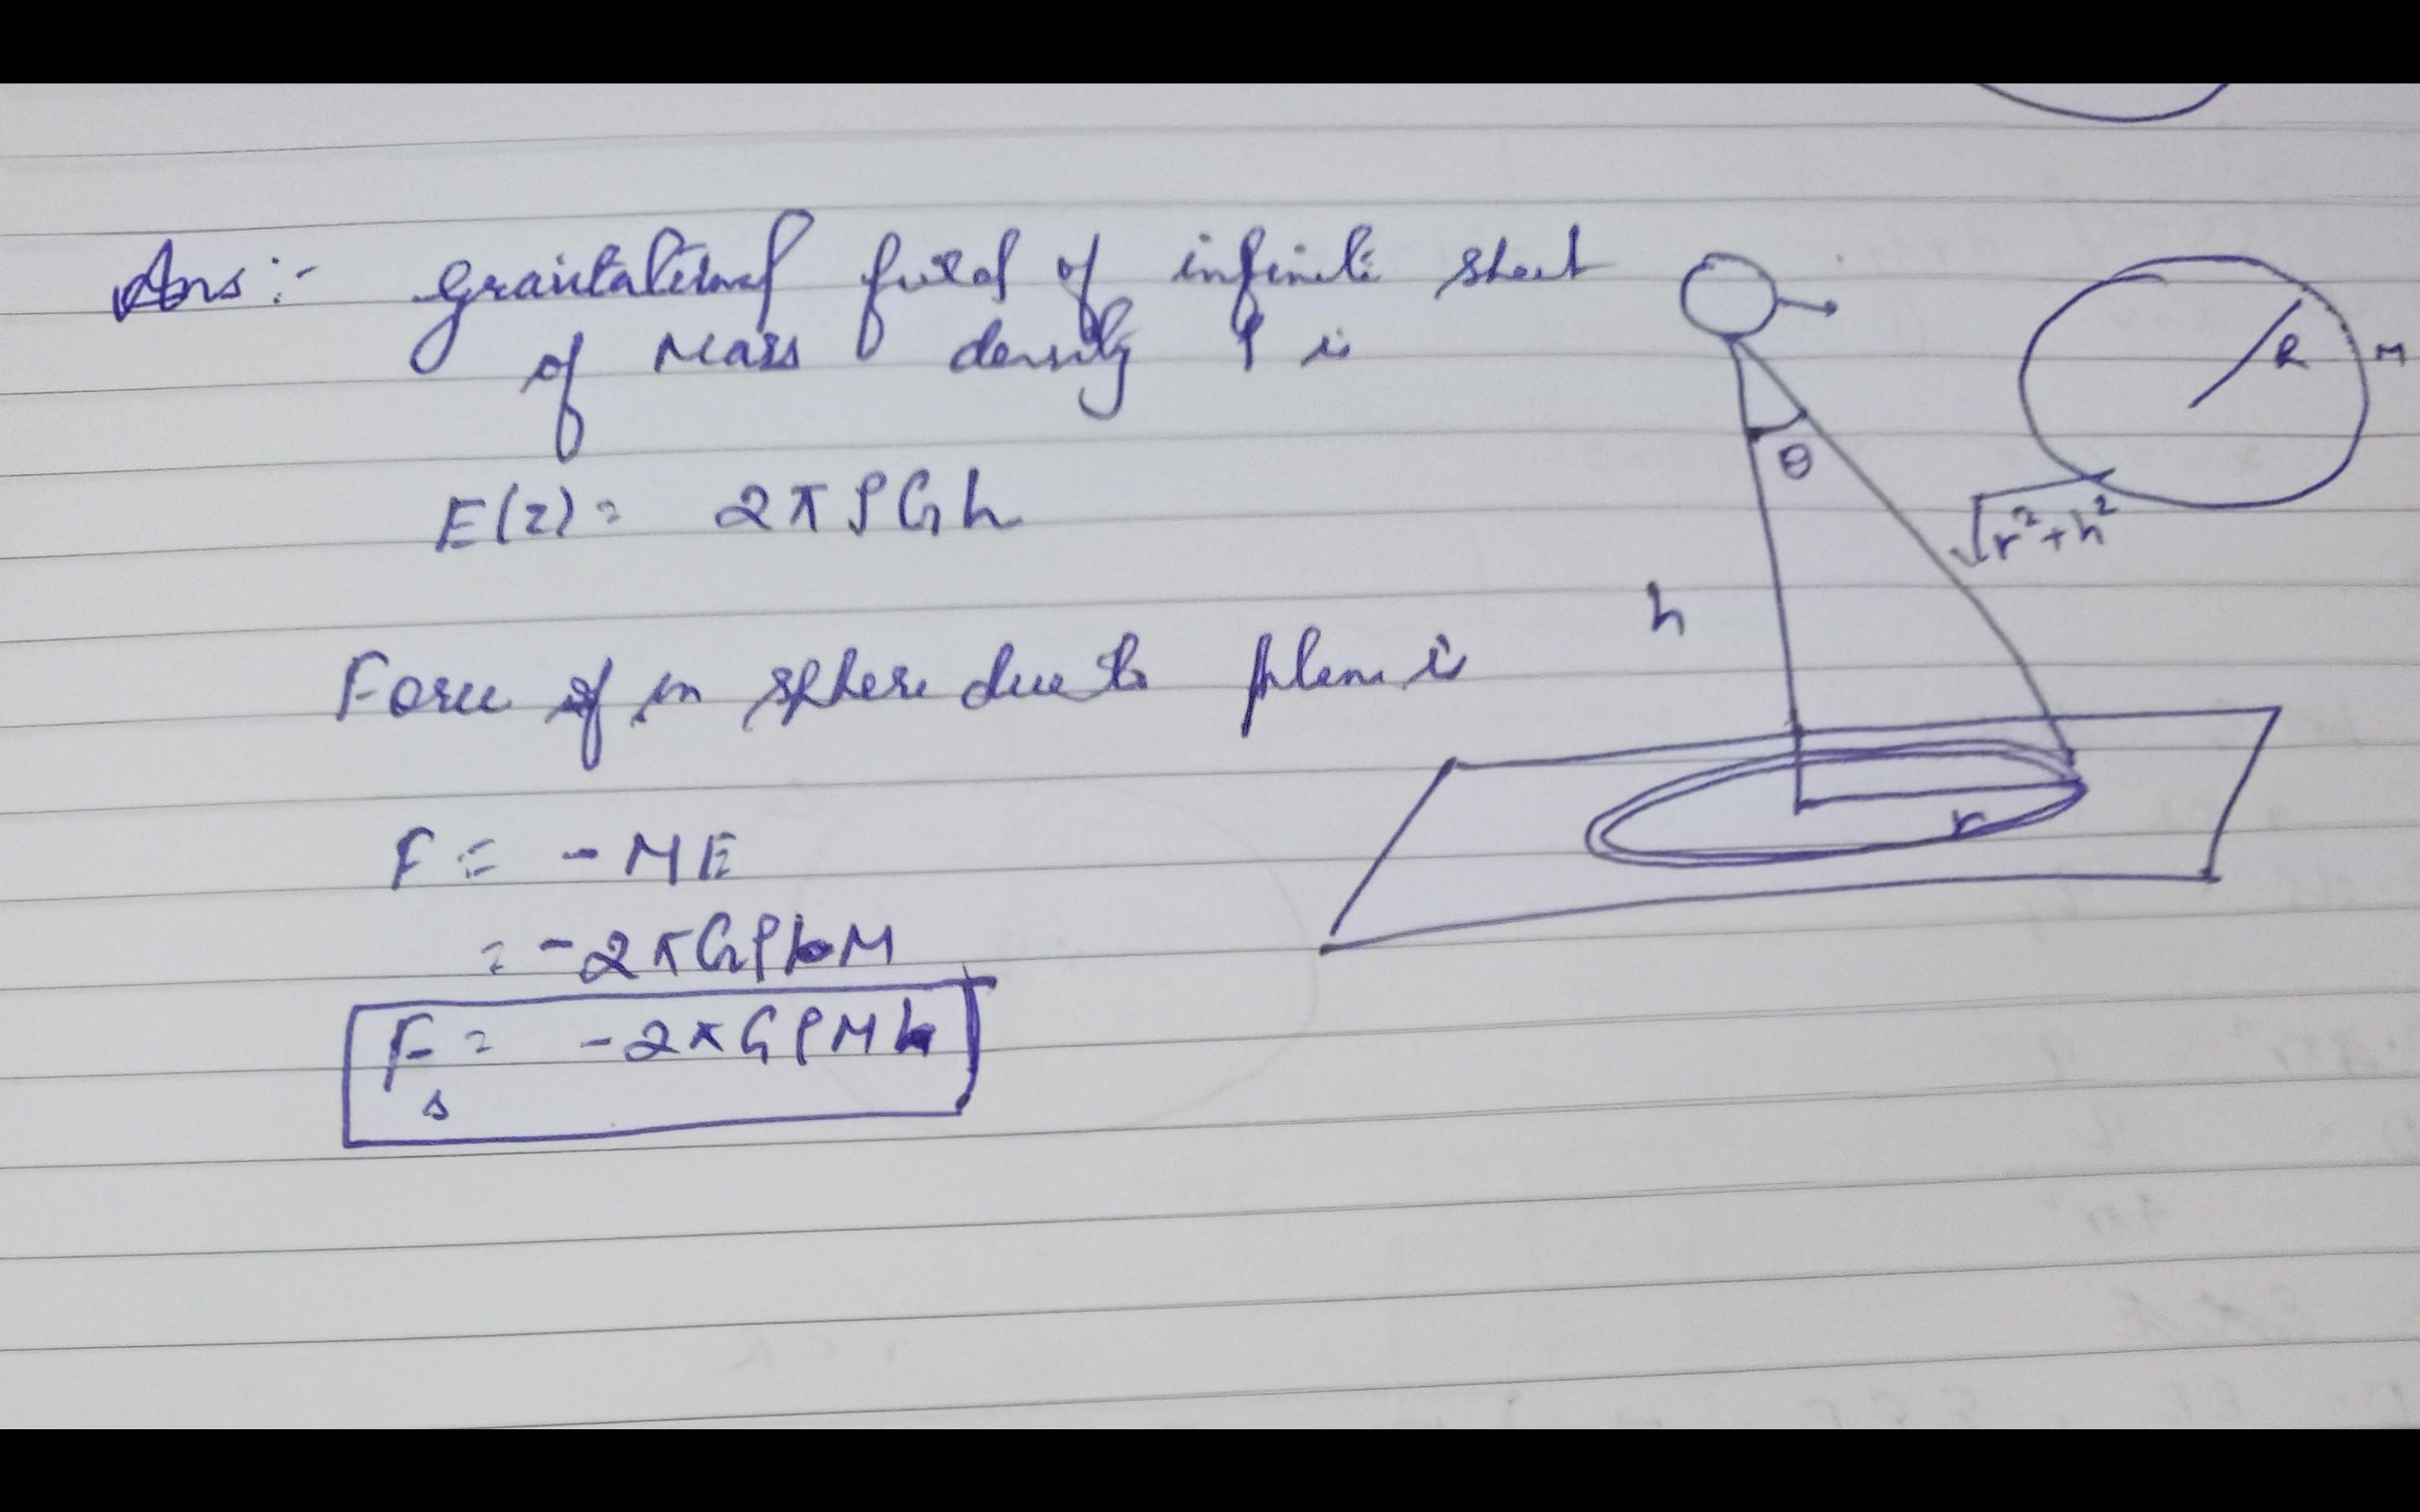 Ans:- graitational field of infinite sheet
of Mass density ρ is
E(z) = 2πρGh
Force of m sphere due to plane is
F = -ME
= -2πGρhM
F = -2πGρMh
s
θ
R M
√r²+h²
h
r